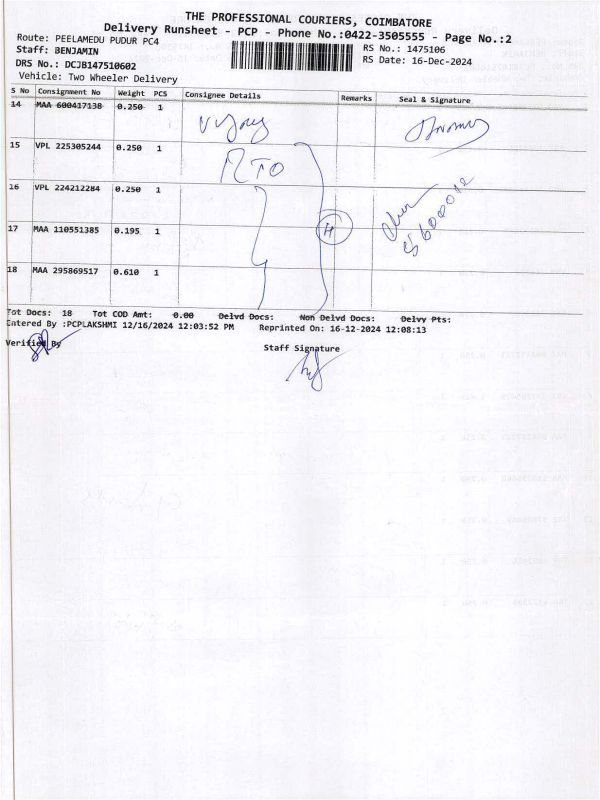 THE PROFESSIONAL COURIERS, COIMBATORE
Delivery Runsheet - PCP - Phone No.:0422-3505555 - Page No.:2
Route: PEELAMEDU PUDUR PC4
RS No.: 1475106
Staff: BENJAMIN
RS Date: 16-Dec-2024
DRS No.: DCJB147510602
Vehicle: Two Wheeler Delivery
S No Consignment No Weight PCS Consignee Details Remarks Seal & Signature
14 MAA 600417138 0.250 1
15 VPL 225305244 0.250 1
RTO
16 VPL 224212284 0.250 1
17 MAA 110551385 0.195 1
H
18 MAA 295869517 0.610 1
Tot Docs: 18 Tot COD Amt: 0.00 Delvd Docs: Non Delvd Docs: Delvy Pts:
Entered By :PCPLAKSHMI 12/16/2024 12:03:52 PM Reprinted On: 16-12-2024 12:08:13
Verified By
Staff Signature